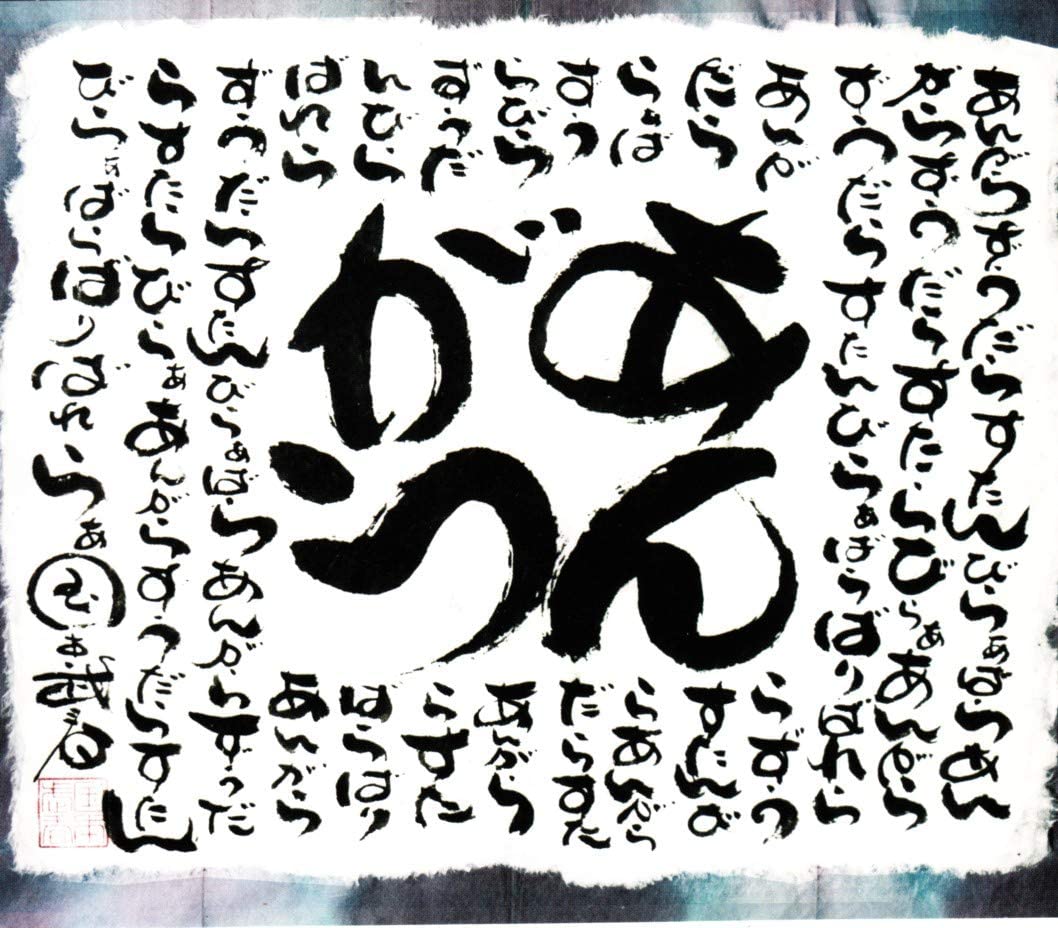 あんがらずうだらすたんびらぁばらあん
がらずうだらすたらびらぁあんがら
ずうだらすたんびらぁばらばりばれら
あんが
だら
らぁば
すう
らびら
ずうだ
んびら
ばれら
あん
がら
らずう
すたんび
らあんがら
だらすた
あんがら
らずた
ばらばり
あんがら
ずうだらすたんびらぁばらあんがらずうだ
らすたらびらぁあんがらずうだらすたん
びらぁばらばりばれらぁ